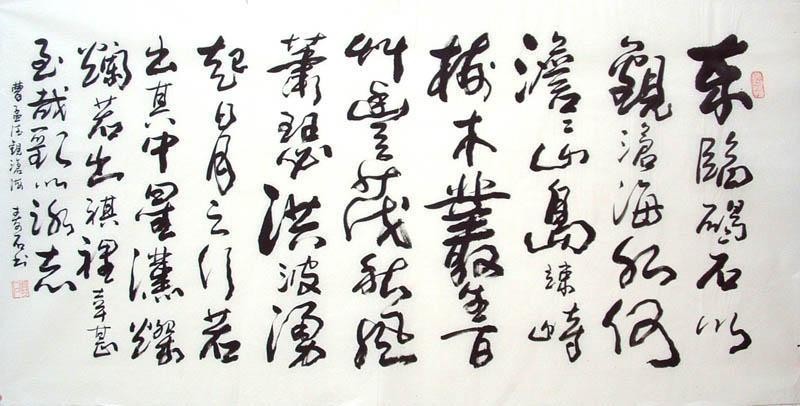 東臨碣石以
觀滄海水何
澹〻山島竦峙
樹木叢生百
艸豐茂秋風
蕭瑟洪波湧
起日月之行若
出其中星漢燦
爛若出祺裡幸甚
至哉歌以詠志
曹孟德觀滄海 石书